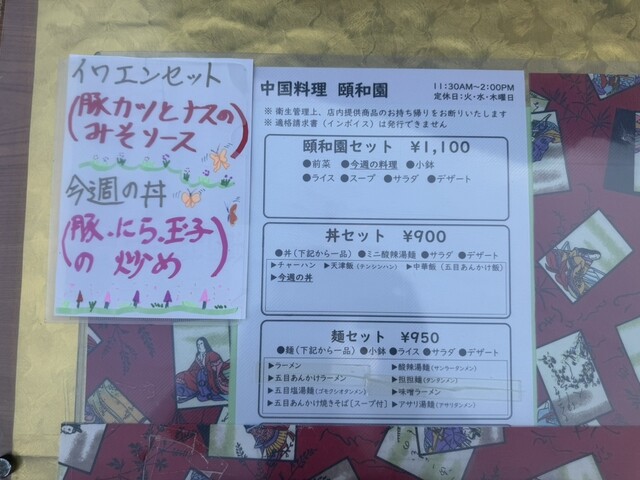 イワエンセット
(豚カツとナスの
みそソース)
今週の丼
(豚.にら.玉子
の炒め)
中国料理 頤和園
11:30AM~2:00PM
定休日:火・水・木曜日
※ 衛生管理上、店内提供商品のお持ち帰りをお断りいたします
※ 適格請求書(インボイス)は発行できません
頤和園セット ¥1,100
●前菜 ●今週の料理 ●小鉢
●ライス ●スープ ●サラダ ●デザート
丼セット ¥900
●丼(下記から一品) ●ミニ酸辣湯麺 ●サラダ ●デザート
▶チャーハン ▶天津飯(テンシンハン) ▶中華飯(五目あんかけ飯)
▶今週の丼
麺セット ¥950
●麺(下記から一品) ●小鉢 ●ライス ●サラダ ●デザート
▶ラーメン ▶酸辣湯麺(サンラータンメン)
▶五目あんかけラーメン ▶担担麺(タンタンメン)
▶五目塩湯麺(ゴモクシオタンメン) ▶味噌ラーメン
▶五目あんかけ焼きそば[スープ付] ▶アサリ湯麺(アサリタンメン)